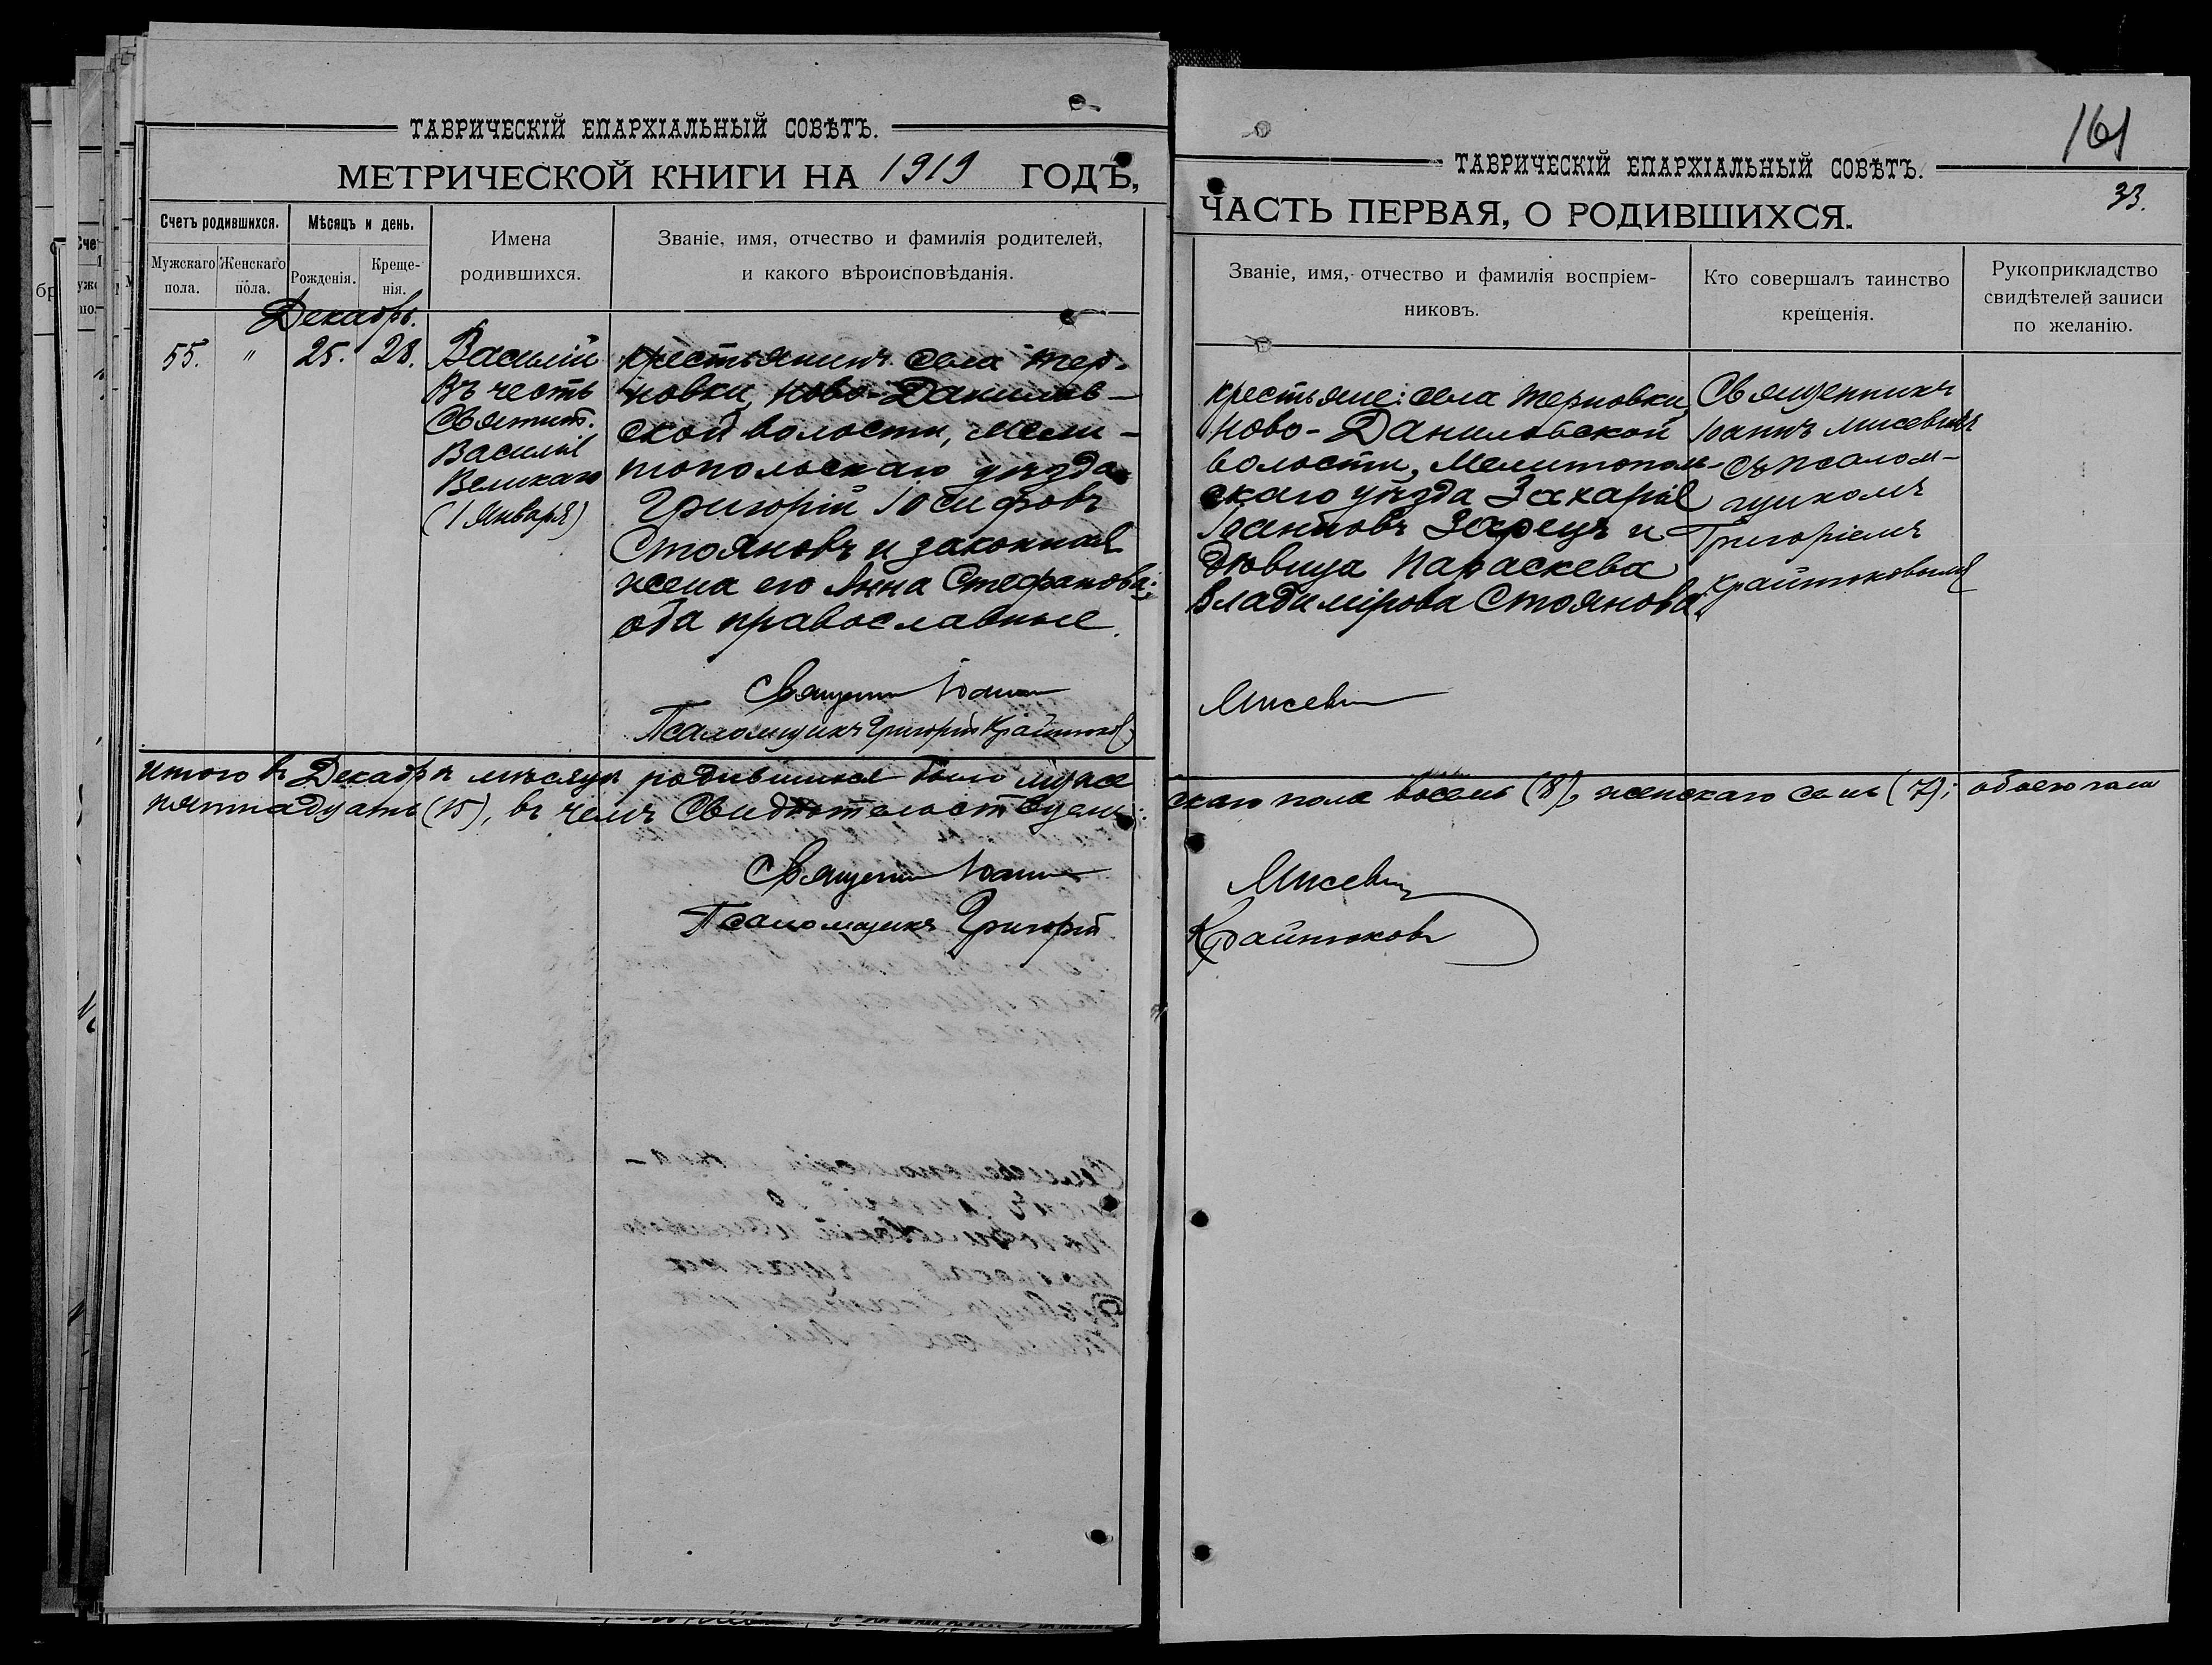 ТАВРИЧЕСКІЙ ЕПАРХІАЛЬНЫЙ СОВѢТЪ.
МЕТРИЧЕСКОЙ КНИГИ НА 1919 ГОДЪ,
Счетъ родившихся.
Мужскаго пола.
Женскаго пола.
Мѣсяцъ и день.
Рожденія.
Креще-
нія.
Имена
родившихся.
Званіе, имя, отчество и фамилія родителей,
и какого вѣроисповѣданія.
Декабрь.
55.
"
25.
28.
Василій
Въ честь
Святит.
Василія
Великаго
(1 Января)
крестьянинъ села Тер-
новки, Ново-Данилов-
ской волости, Мели-
топольскаго уѣзда
Григорій Іосифовъ
Стояновъ и законная
жена его Анна Стефанова;
оба православные.
Священникъ Іоаннъ
Псаломщикъ Григорій Крайтоков
Итого въ Декабрѣ мѣсяцѣ родившихся было муже
пятнадцать (15), въ чемъ свидѣтельствуемъ:
Священникъ Іоаннъ
Псаломщикъ Григорій
161
33.
ТАВРИЧЕСКІЙ ЕПАРХІАЛЬНЫЙ СОВѢТЪ.
ЧАСТЬ ПЕРВАЯ, О РОДИВШИХСЯ.
Званіе, имя, отчество и фамилія воспріем-
никовъ.
Кто совершалъ таинство
крещенія.
Рукоприкладство
свидѣтелей записи
по желанію.
крестьяне: села Терновки,
Ново-Даниловской
волости, Мелитополь-
скаго уѣзда Захарія
Іоанновъ Заецъ и
дѣвица Параскева
Владимірова Стоянова.
Священникъ
Іоаннъ Мисевичъ
съ псалом-
щикомъ
Григоріемъ
Крайтоковымъ
Мисевич
скаго пола восемь (8), женскаго семь (7); обоего пола
Мисевич
Крайтоковъ